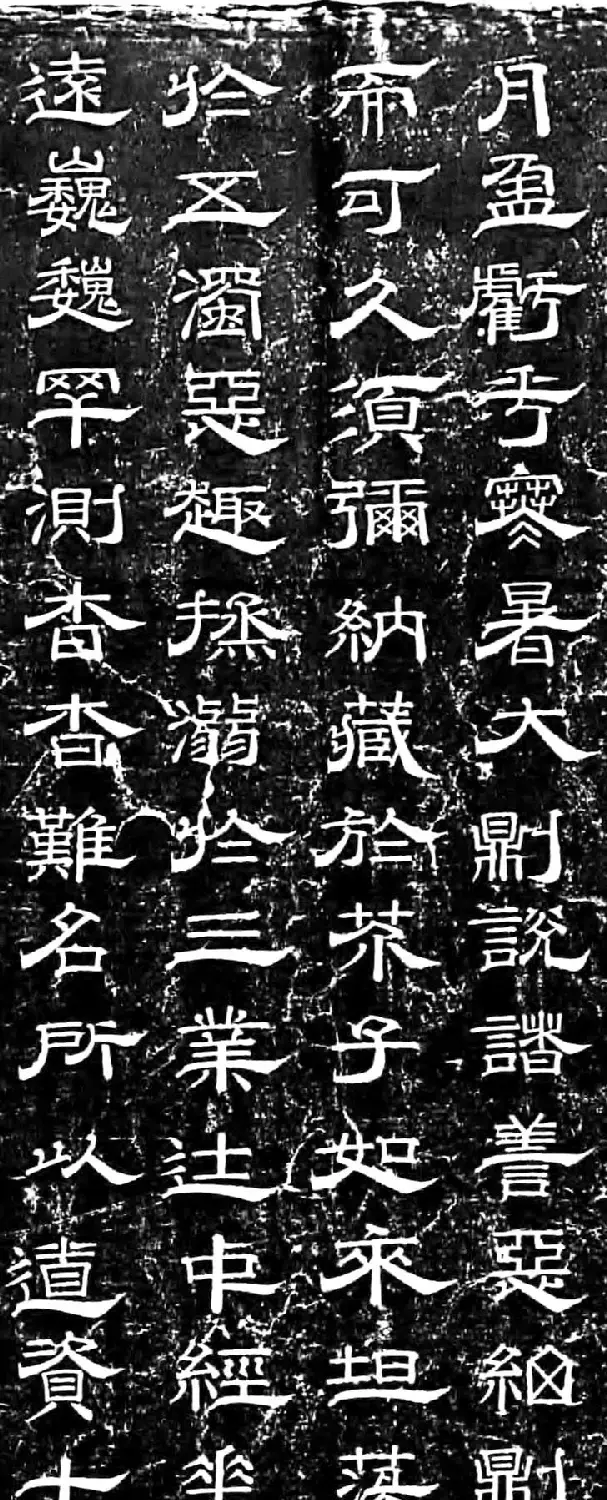 月盈虧乎寒暑大則說諸善惡細則
而可久須彌納藏於芥子如來坦蕩
於五濁惡趣拯溺於三業途中經垂
遠巍巍罕測杳杳難名所以道資十